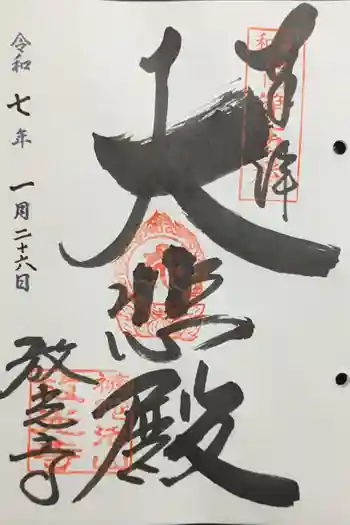 奉拝
大悲殿
放光寺
令和七年一月二十六日